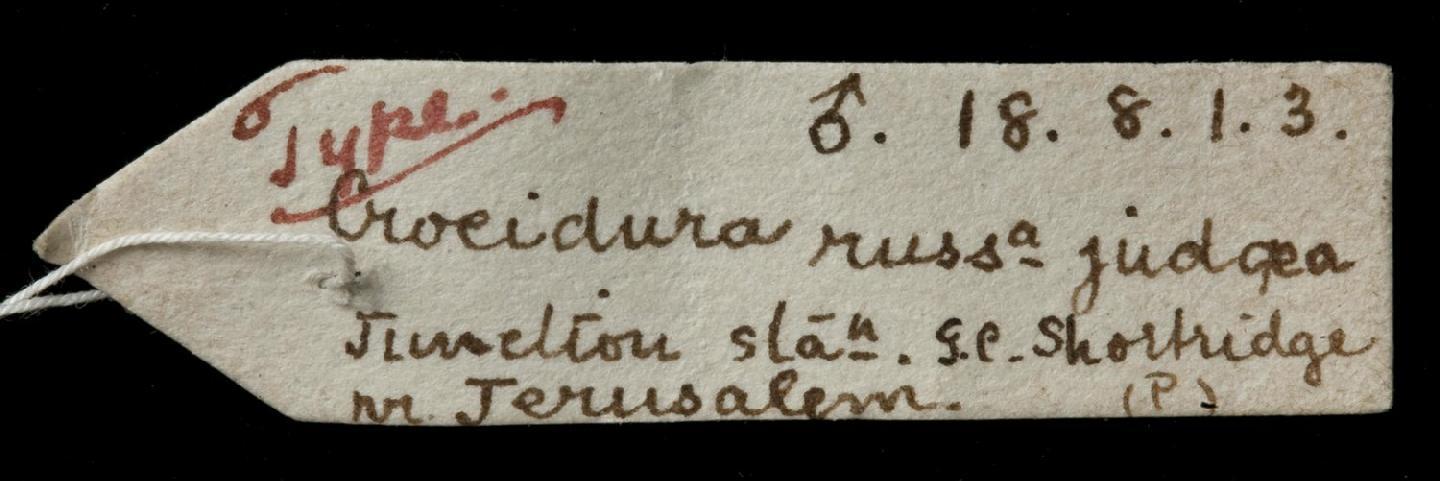 Type. ♂. 18. 8. 1. 3.
Crocidura russa judæa
Junction stān. G.C. Shortridge
nr. Jerusalem. (P)